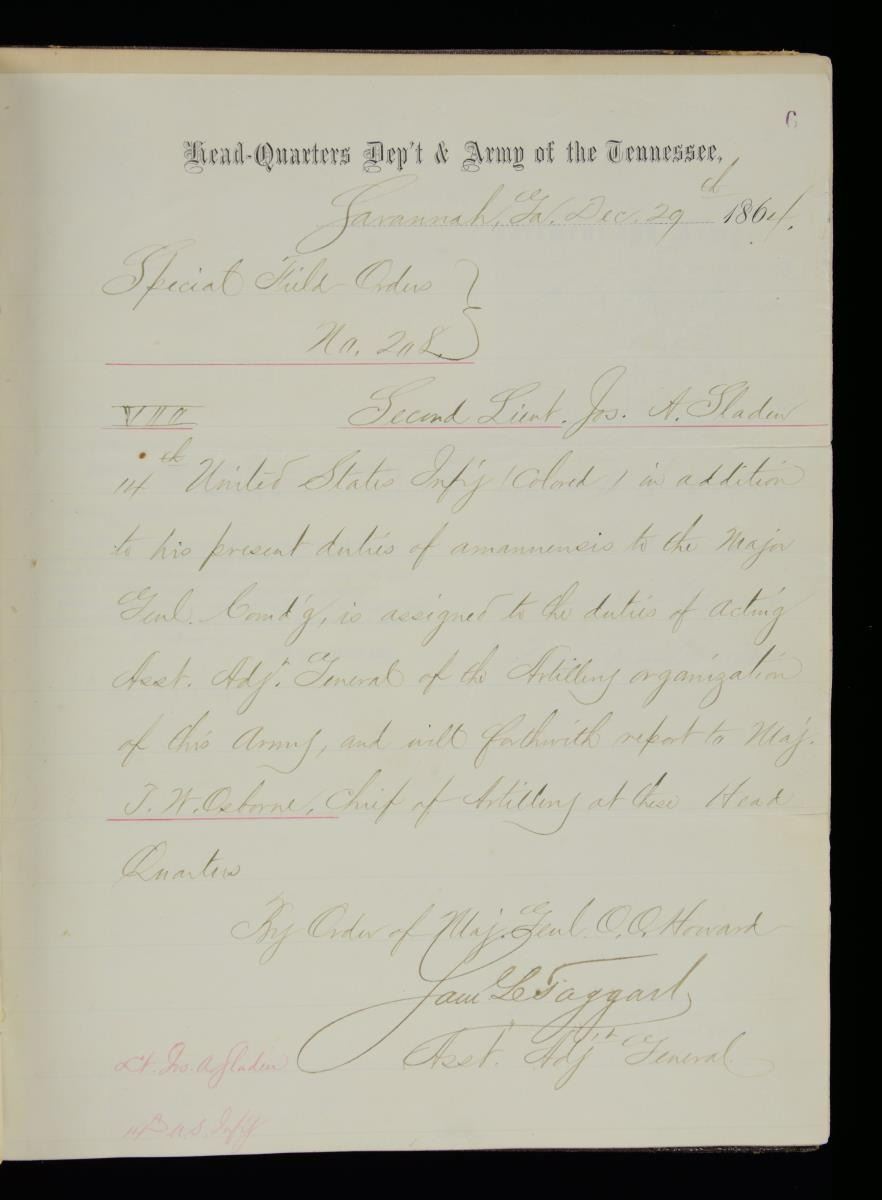 6
Head-Quarters Dep't & Army of the Tennessee,
Savannah, Ga. Dec. 29th 1864.
Special Field Orders }
No. 208. }
VIII Second Lieut. Jos. A. Sladen
14th United States Inf'y (Colored) in addition
to his present duties of amanuensis to the Major
Genl. Comd'g, is assigned to the duties of Acting
Asst. Adjt. General of the Artillery organization
of this Army, and will forthwith report to Maj.
T. W. Osborne, Chief of Artillery at these Head
Quarters
By Order of Maj. Genl. O. O. Howard
Sam L Taggart
Asst. Adjt General
Lt. Jos. A Sladen
14th U.S. Inf'y